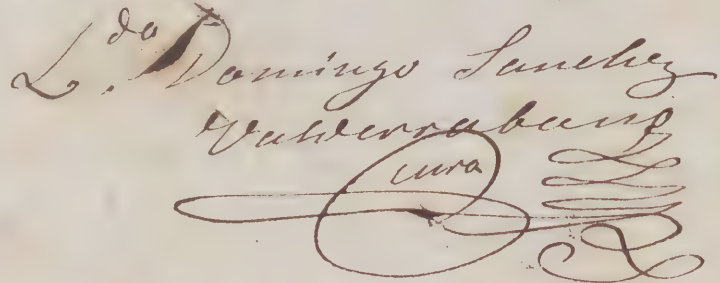 L.do Domingo Sanchez
Valderrabano
cura